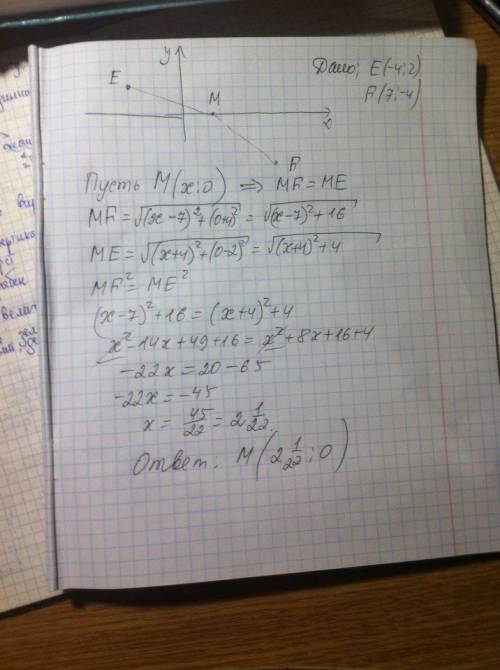 y
Дано; E(-4;2)
F(7;-4)
E
M
x
F
Пусть M(x;0) ⇒ MF=ME
MF=√(x-7)²+(0+4)² = √(x-7)²+16
ME=√(x+4)²+(0-2)² = √(x+4)²+4
MF²=ME²
(x-7)²+16=(x+4)²+4
x²-14x+49+16=x²+8x+16+4
-22x=20-65
-22x=-45
x= 45/22 = 2 1/22.
Ответ: M(2 1/22; 0)